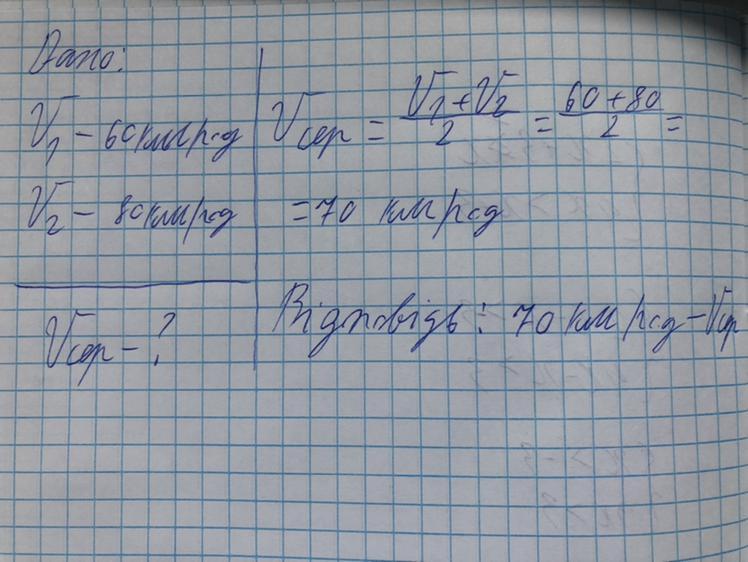 Дано:
V₁ – 60 км/год
V₂ – 80 км/год
Vсер – ?
Vсер = (V₁ + V₂)/2 = (60 + 80)/2 =
= 70 км/год
Відповідь: 70 км/год – Vсер